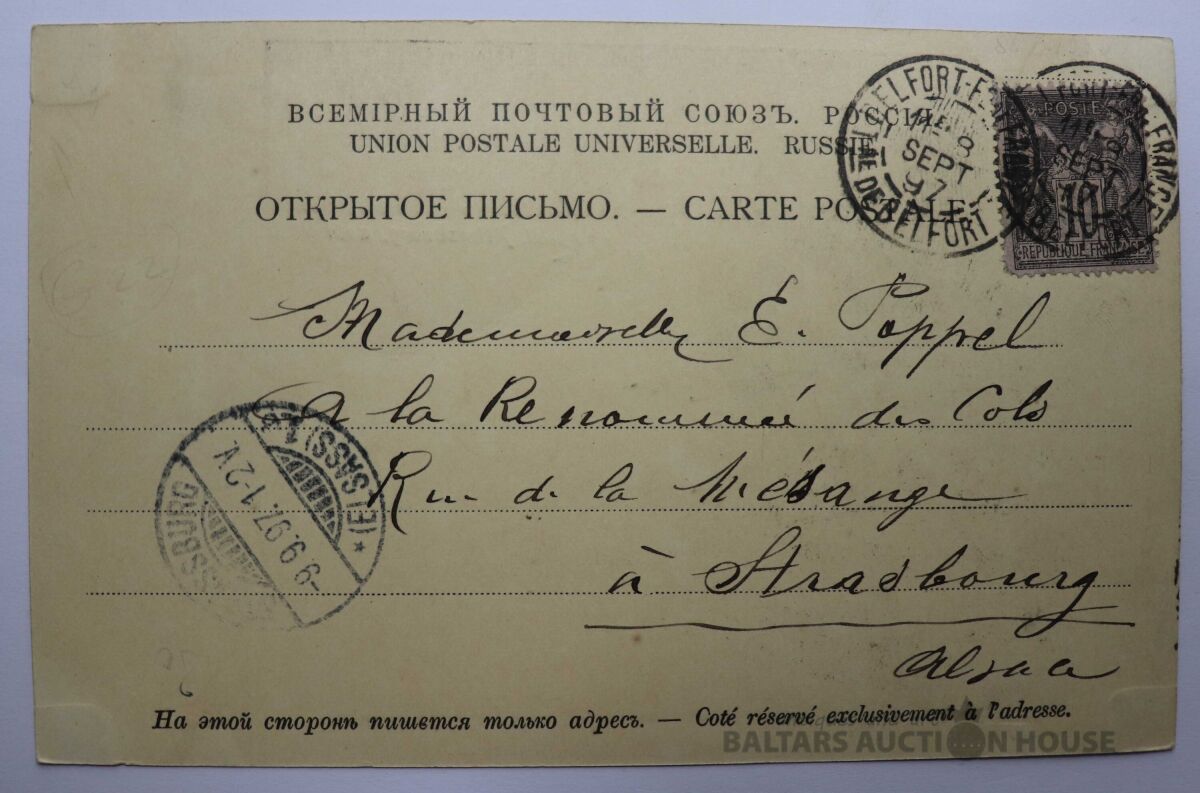 ВСЕМІРНЫЙ ПОЧТОВЫЙ СОЮЗЪ. РОССІЯ.
UNION POSTALE UNIVERSELLE. RUSSIE.
ОТКРЫТОЕ ПИСЬМО. — CARTE POSTALE.
BELFORT
8
SEPT
97
DE BELFORT
POSTE
10
REPUBLIQUE FRANÇAISE
Mademoiselle E. Poppel
A la Renommée des Cols
Rue de la Mésange
à Strasbourg
Alsace
SSBURG
(ELSASS) 1
-9.9.97. 1-2V.
На этой сторонѣ пишется только адресъ. — Coté réservé exclusivement à l'adresse.
BALTARS AUCTION HOUSE